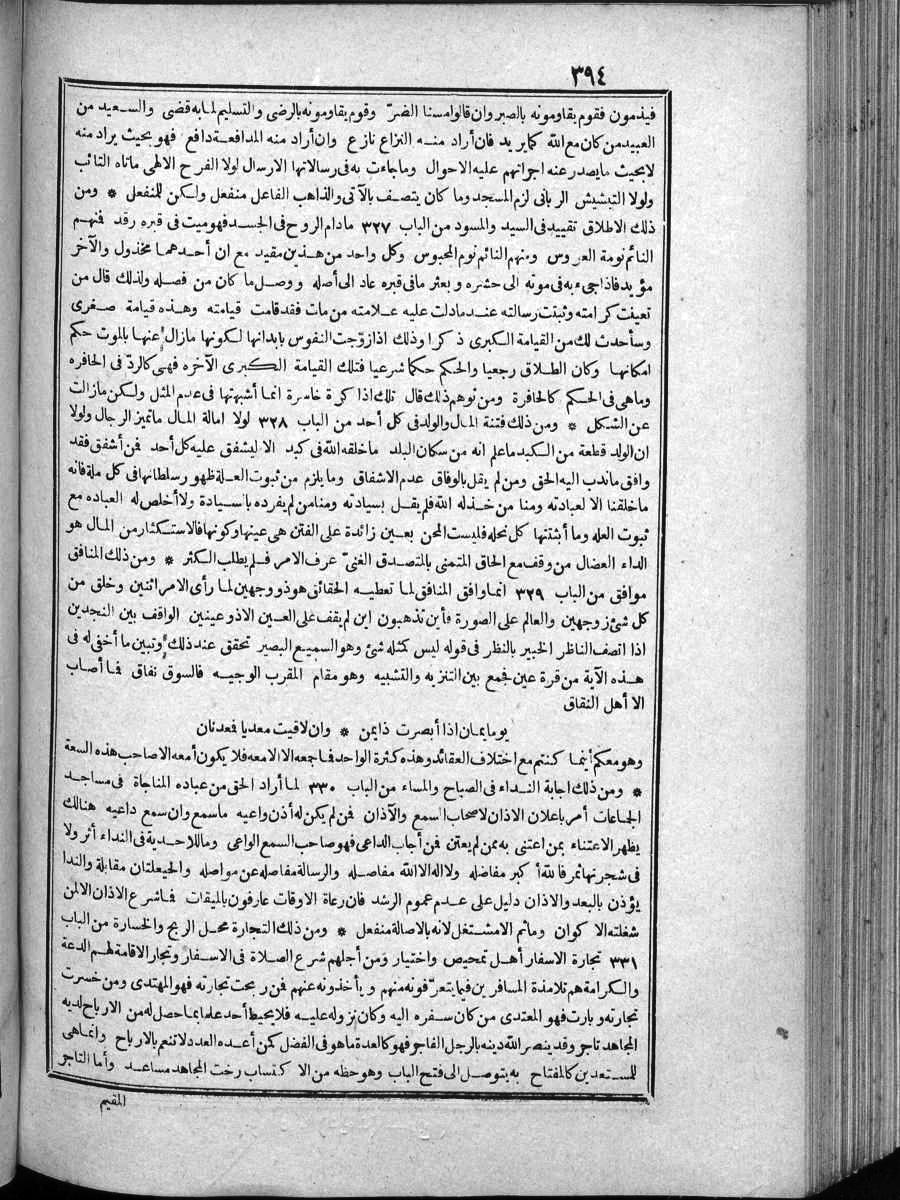 ٣٩٤
فيذمون فقوم يقاومونه بالصبر وان قالوا مسنا الضرّ وقوم يقاومونه بالرضى والتسليم لما به قضى والسعيد من
العبيد من كان مع الله كما يريد فان أراد منه النزاع نازع وان أراد منه المدافعة دافع فهو بحيث يراد منه
لا بحيث ما يصدر عنه اجرائهم عليه الاحوال وما جاءت به فى رسالاتها الارسال لولا الفرح الالهى ماتاه التائب
ولولا التبشيش الربانى لزم المسجد وما كان يتصف بالآتى والذاهب الفاعل منفعل ولكن للمنفعل * ومن
ذلك الاطلاق تقييد فى السيد والمسود من الباب ٣٢٧ مادام الروح فى الجسد فهو ميت فى قبره رقد فنهم
النائم نومة العروس ومنهم النائم نوم المحبوس وكل واحد من هذين مقيد مع ان أحدهما مخذول والآخر
مؤيد فاذا جىء به فى موته الى حشره وبعثر ما فى قبره عاد الى أصله ووصل ما كان من فصله ولذلك قال من
تعينت كرامته وثبتت رسالته عند ما دلت عليه علامته من مات فقد قامت قيامته وهذه قيامة صغرى
وسأحدث لك من القيامة الكبرى ذكرا وذلك اذا زوّجت النفوس بابدانها لكونها مازال عنها بالموت حكم
امكانها وكان الطلاق رجعيا والحكم حكما شرعيا فتلك القيامة الكبرى الآخره فهى كالردّ فى الحافره
وما هى فى الحكم كالحافرة ومن توهم ذلك قال تلك اذا كرة خاسرة انما أشبهتها فى عدم المثل ولكن مازالت
عن الشكل * ومن ذلك فتنة المال والولد فى كل أحد من الباب ٣٢٨ لولا امالة المال ما تميز الرجال ولولا
ان الولد قطعة من الكبد ما علم انه من سكان البلد ما خلقه الله فى كبد الا ليشفق عليه كل أحد فمن أشفق فقد
وافق ما ندب اليه الحق ومن لم يقل بالوفاق عدم الاشفاق وما يلزم من ثبوت العلة ظهور سلطانها فى كل ملة فانه
ما خلقنا الا لعبادته ومنا من خذله الله فلم يقل بسيادته ومنا من لم يفرده بالسيادة ولا أخلص له العباده مع
ثبوت العله وما أثبتتها كل نحله فليست المحن بعين زائدة على الفتن هى عينها وكونها فالاستكثار من المال هو
الداء العضال من وقف مع الحاق المتمنى بالمتصدق الغنىّ عرف الامر فلم يطلب الكثر * ومن ذلك المنافق
موافق من الباب ٣٢٩ انما وافق المنافق لما تعطيه الحقائق هو ذو وجهين لما رأى الامر اثنين وخلق من
كل شئ زوجهين والعالم على الصورة فأين تذهبون اين لم يقف على العين الا ذو عينين الواقف بين النجدين
اذا اتصف الناظر الخبير بالنظر فى قوله ليس كمثله شئ وهو السميع البصير تحقق عند ذلك وتبين ما أخفى له فى
هذه الآية من قرة عين فجمع بين التنزيه والتشبيه وهو مقام المقرب الوجيه فالسوق نفاق فما أصاب
الا أهل النفاق
يوما يمان اذا أبصرت ذا يمن * وان لاقيت معديا فعدنان
وهو معكم أينما كنتم مع اختلاف العقائد وهذه كثرة الواحد فما جمعه الا الامعه فلا يكون أمعه الا صاحب هذه السعة
* ومن ذلك اجابة النداء فى الصباح والمساء من الباب ٣٣٠ لما أراد الحق من عباده المناجاة فى مساجد
الجماعات أمر باعلان الاذان لاصحاب السمع والآذان فمن لم يكن له أذن واعيه ما سمع وان سمع داعيه هنالك
يظهر الاعتناء بمن اعتنى به ممن لم يعتن فمن أجاب الداعى فهو صاحب السمع الواعى وما للاحدية فى النداء أثر ولا
فى شجرتها ثمر فالله أكبر مفاضله ولا اله الا الله مفاصله والرسالة مفاصله عن مواصله والحيعلتان مقابلة والندا
يؤذن بالبعد والاذان دليل على عدم عموم الرشد فان رعاة الاوقات عارفون بالميقات فما شرع الاذان الا لمن
شغلته الاكوان وما ثم الا مشتغل لانه بالاصالة منفعل * ومن ذلك التجارة محل الربح والخسارة من الباب
٣٣١ تجارة الاسفار أهل تمحيص واختيار ومن أجلهم شرع الصلاة فى الاسفار وتجار الاقامة لهم الدعة
والكرامة هم تلامذة المسافرين فيما يتعرّفونه منهم ويأخذونه عنهم فمن ربحت تجارته فهو المهتدى ومن خسرت
تجارته وبارت فهو المعتدى من كان سفره اليه وكان نزوله عليه فلا يحيط أحد علما بما حصل له من الارباح لديه
المجاهد تاجر وقد ينصر الله دينه بالرجل الفاجر فهو كالعدة ما هو فى الفضل كمن أعدّه العدد لا تنعم بالارباح وانما هى
للمستعدين كالمفتاح به يتوصل الى فتح الباب وهو حظه من الاكتساب رخت المجاهد مساعد وأما التاجر
المقيم